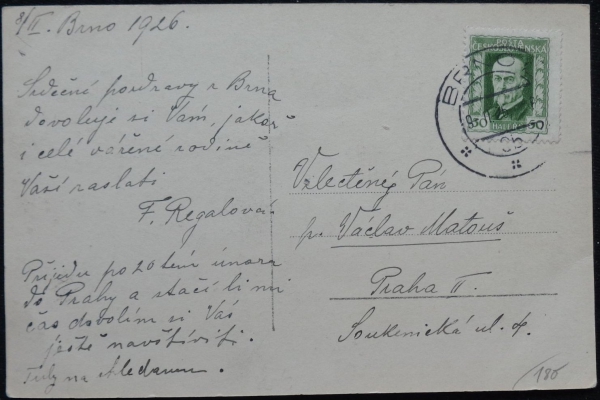 8/II. Brno 1926.
Srdečné pozdravy z Brna
dovoluje si Vám, jakož
i celé vážené rodině
Vaší zaslati
F. Regalová
Přijedu po 20tém února
do Prahy a stačí li mi
čas dovolím si Vás
ještě navštíviti.
Vzlectěný Pán
p. Václav Matouš
Praha II.
Soukenická ul. 4.
POSTA
ČESKOSLOVENSKÁ
50 HALÉŘŮ 50
BRNO
180